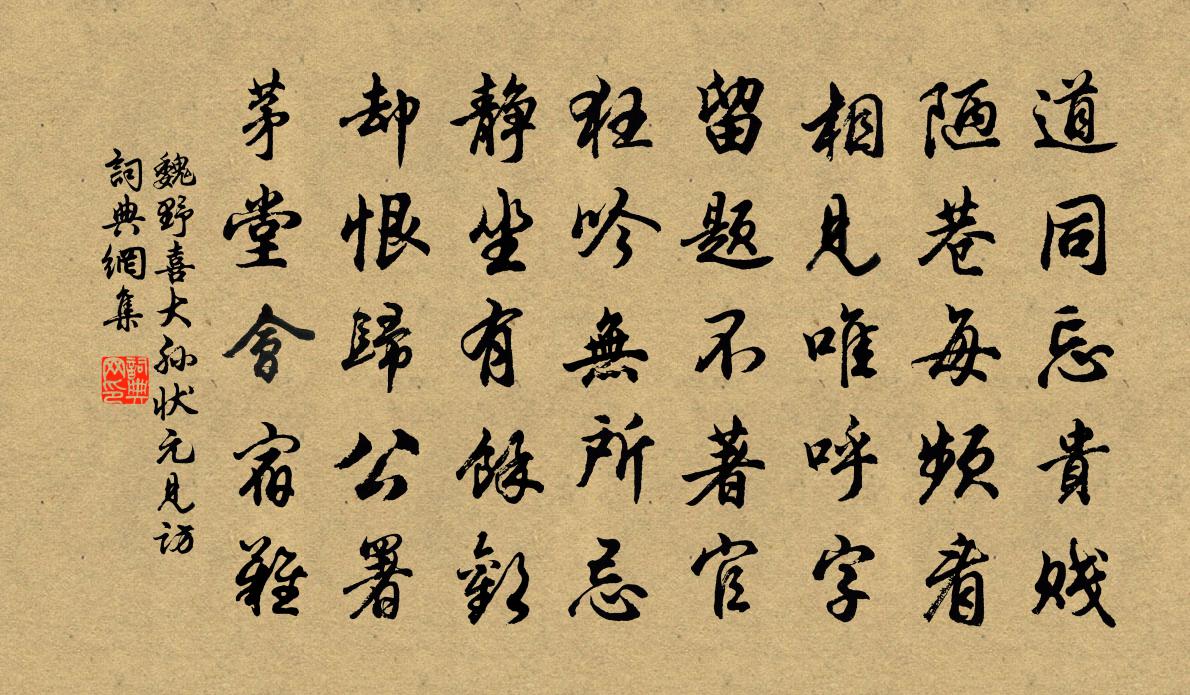 道同忘貴賤
陋巷每頻看
相見唯呼字
留題不著官
狂吟無所忌
静坐有餘歡
却恨歸公署
茅堂會宿難
魏野喜大孙状元見訪
詞典網集
詞典网印